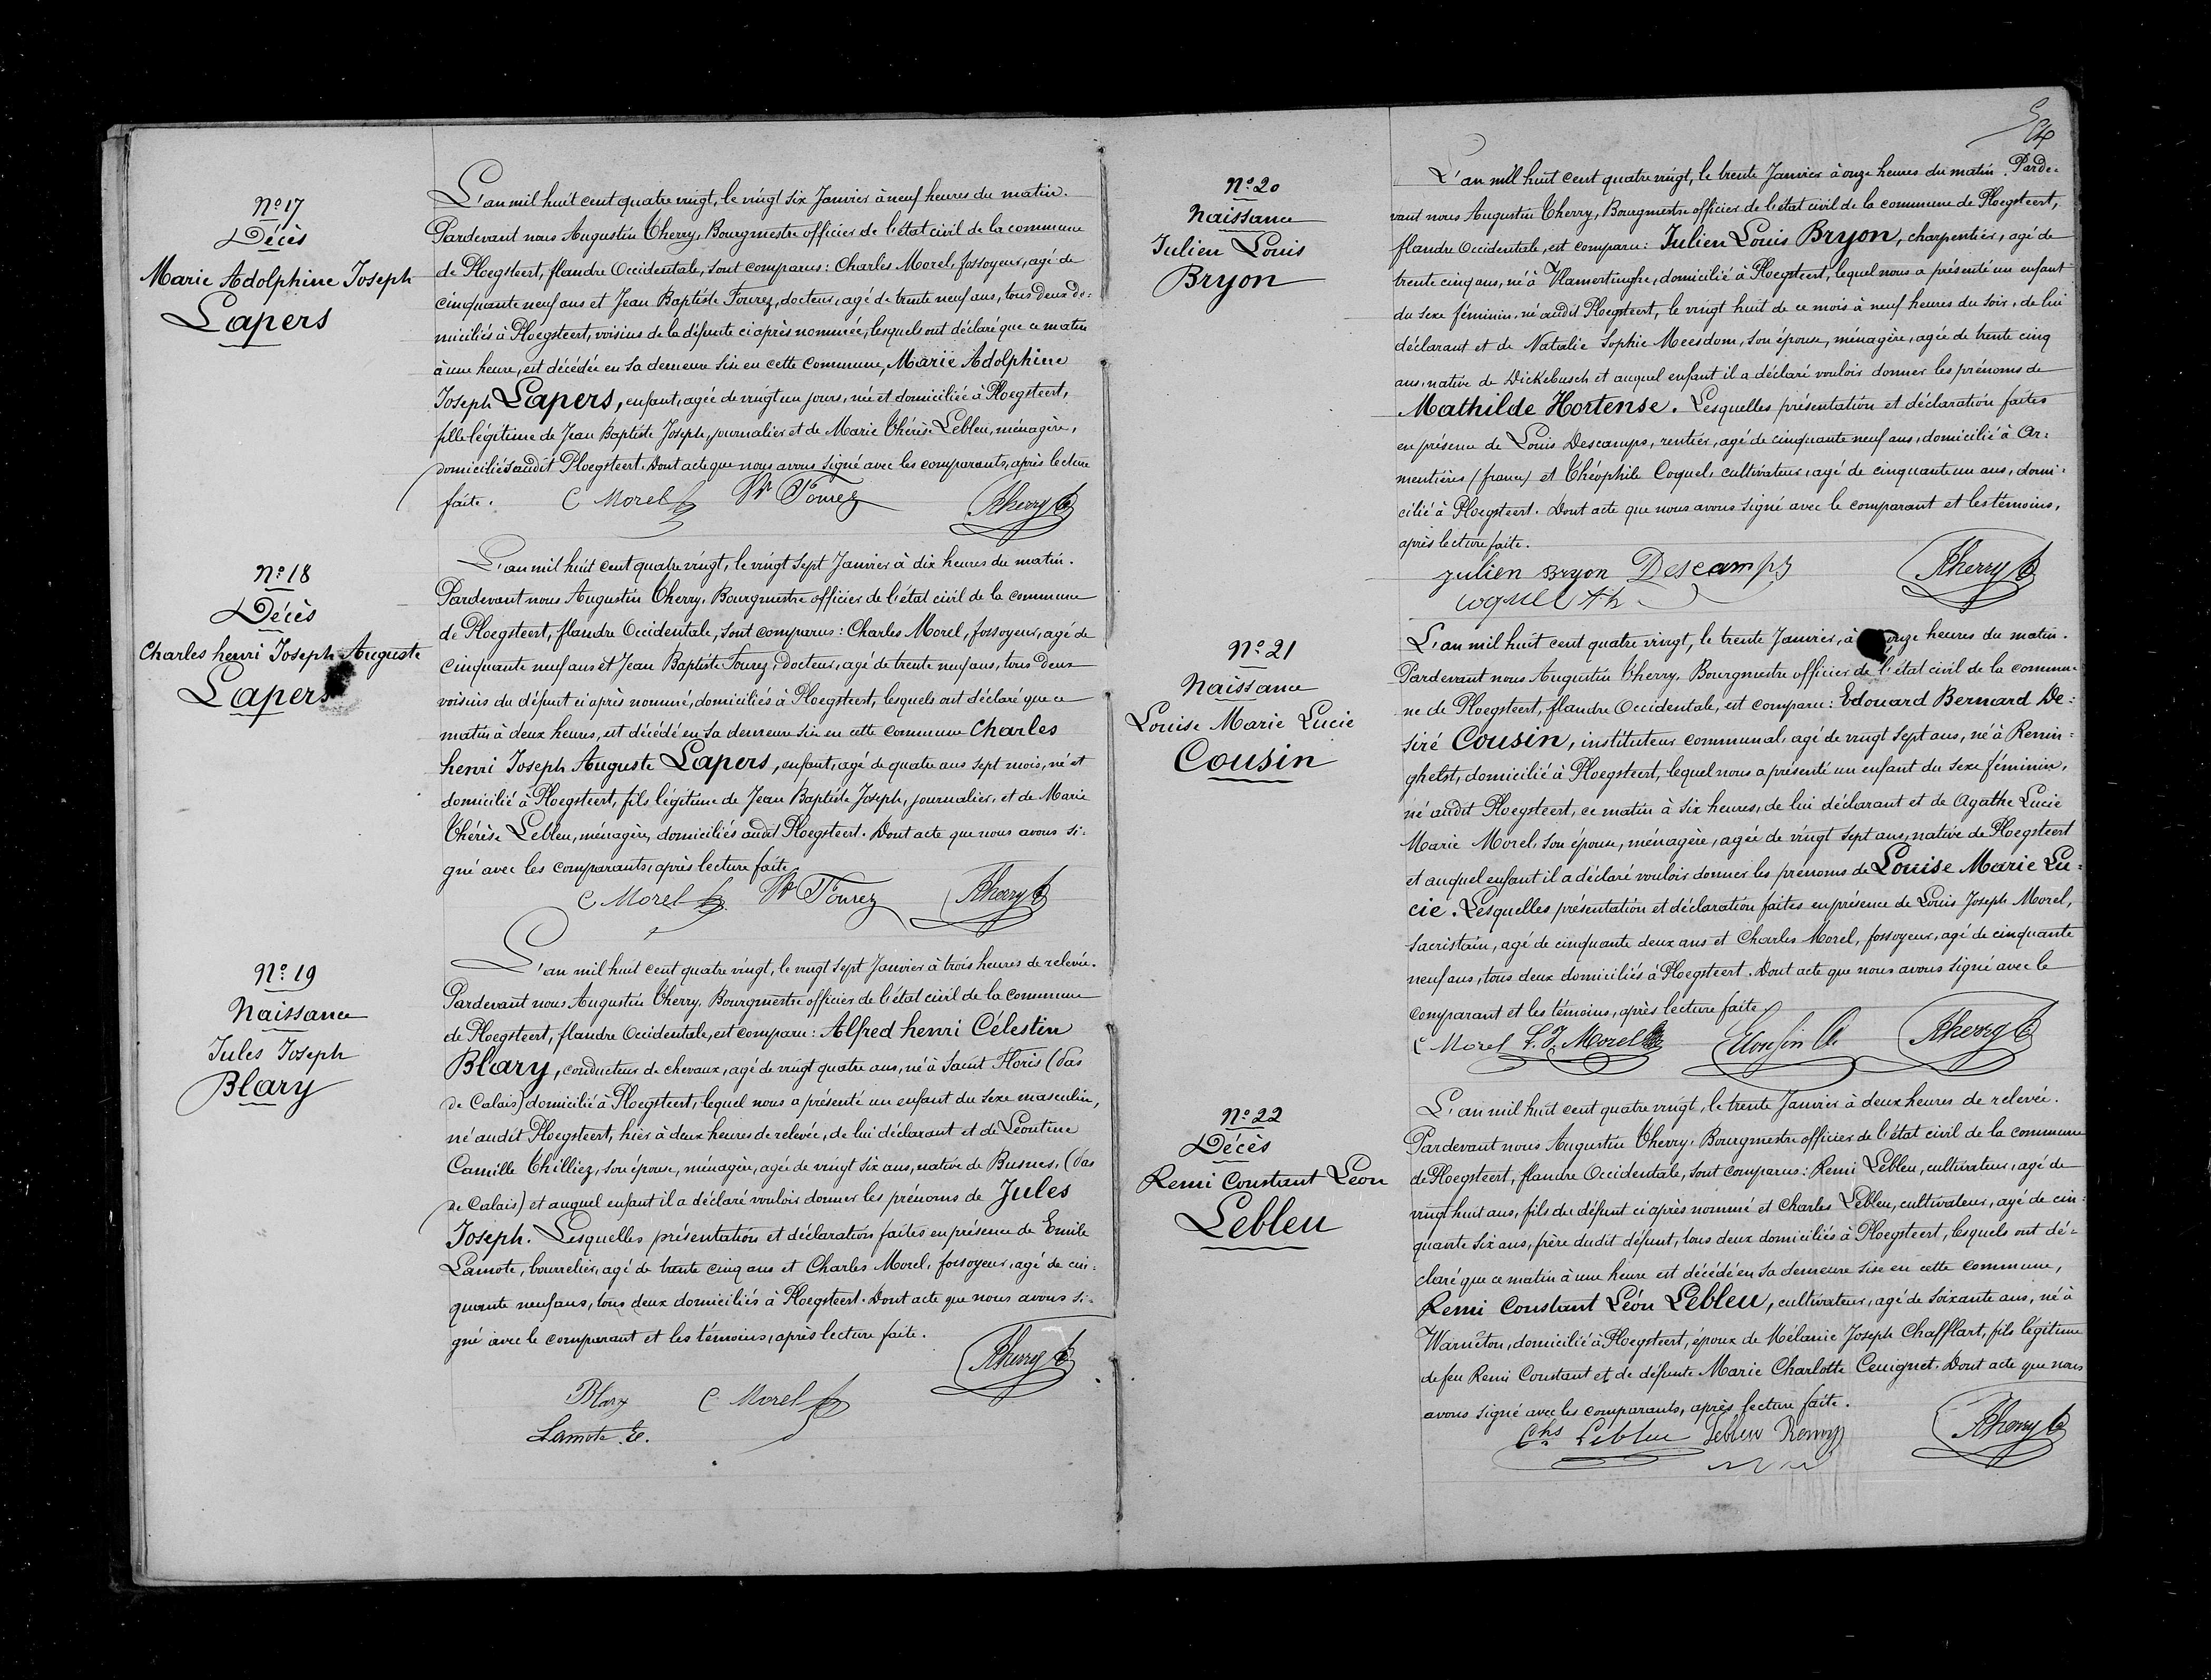 Nº 17
Décès
Marie Adolphine Joseph
Lapers
L'an mil huit cent quatre vingt, le vingt six Janvier à neuf heures du matin.
Pardevant nous Augustin Therry, Bourgmestre officier de l'état civil de la commune
de Ploegsteert, flandre Occidentale, sont comparus : Charles Morel, fossoyeur, agé de
cinquante neuf ans et Jean Baptiste Fourez, docteur, agé de trente neuf ans, tous deux do=
miciliés à Ploegsteert, voisins de la défunte ci après nommée, lesquels ont déclaré que ce matin
à une heure, est décédée en sa demeure sise en cette commune, Marie Adolphine
Joseph Lapers, enfant, agée de vingt un jours, née et domiciliée à Ploegsteert,
fille légitime de Jean Baptiste Joseph, journalier et de Marie Thérèse Lebleu, ménagère,
domiciliés audit Ploegsteert. Dont acte que nous avons signé avec les comparants, après lecture
faite.
C Morel Fourez Therry
Nº 18
Décès
Charles henri Joseph Auguste
Lapers
L'an mil huit cent quatre vingt, le vingt sept Janvier à dix heures du matin.
Pardevant nous Augustin Therry, Bourgmestre officier de l'état civil de la commune
de Ploegsteert, flandre Occidentale, sont comparus : Charles Morel, fossoyeur, agé de
cinquante neuf ans et Jean Baptiste Fourez, docteur, agé de trente neuf ans, tous deux
voisins du défunt ci après nommé, domiciliés à Ploegsteert, lesquels ont déclaré que ce
matin à deux heures, est décédé en sa demeure sise en cette commune Charles
henri Joseph Auguste Lapers, enfant, agé de quatre ans sept mois, né et
domicilié à Ploegsteert, fils légitime de Jean Baptiste Joseph, journalier, et de Marie
Thérèse Lebleu, ménagère, domiciliés audit Ploegsteert. Dont acte que nous avons si=
gné avec les comparants, après lecture faite.
C Morel Fourez Therry
Nº 19
Naissance
Jules Joseph
Blary
L'an mil huit cent quatre vingt, le vingt sept Janvier à trois heures de relevée.
Pardevant nous Augustin Therry, Bourgmestre officier de l'état civil de la commune
de Ploegsteert, flandre Occidentale, est comparu : Alfred henri Célestin
Blary, conducteur de chevaux, agé de vingt quatre ans, né à Saint Floris (Pas
de Calais) domicilié à Ploegsteert, lequel nous a présenté un enfant du sexe masculin,
né audit Ploegsteert, hier à deux heures de relevée, de lui déclarant et de Léontine
Camille Thilliez, son épouse, ménagère, agée de vingt six ans, native de Busnes, (Pas
de Calais) et auquel enfant il a déclaré vouloir donner les prénoms de Jules
Joseph. Lesquelles présentation et déclaration faites en présence de Emile
Lamote, bourrelier, agé de trente cinq ans et Charles Morel, fossoyeur, agé de cin=
quante neuf ans, tous deux domiciliés à Ploegsteert. Dont acte que nous avons si=
gné avec le comparant et les témoins, après lecture faite.
Therry
Blary C. Morel
Lamote E.
Nº 20
Naissance
Julien Louis
Bryon
L'an mil huit cent quatre vingt, le trente Janvier à onze heures du matin. Parde=
vant nous Augustin Therry, Bourgmestre officier de l'état civil de la commune de Ploegsteert,
flandre Occidentale, est comparu : Julien Louis Bryon, charpentier, agé de
trente cinq ans, né à Vlamertinghe, domicilié à Ploegsteert, lequel nous a présenté un enfant
du sexe féminin, né audit Ploegsteert, le vingt huit de ce mois à neuf heures du soir, de lui
déclarant et de Natalie Sophie Meesdom, son épouse, ménagère, agée de trente cinq
ans, native de Dickebusch et auquel enfant il a déclaré vouloir donner les prénoms de
Mathilde Hortense. Lesquelles présentation et déclaration faites
en présence de Louis Descamps, rentier, agé de cinquante neuf ans, domicilié à Ar=
mentières (france) et Théophile Coquel, cultivateur, agé de cinquante un ans, domi=
cilié à Ploegsteert. Dont acte que nous avons signé avec le comparant et les témoins,
après lecture faite.
julien Bryon Descamps Therry
coquel th
Nº 21
Naissance
Louise Marie Lucie
Cousin
L'an mil huit cent quatre vingt, le trente Janvier, à onze heures du matin.
Pardevant nous Augustin Therry, Bourgmestre officier de l'état civil de la commu=
ne de Ploegsteert, flandre Occidentale, est comparu : Edouard Bernard De=
siré Cousin, instituteur communal, agé de vingt sept ans, né à Renin=
ghelst, domicilié à Ploegsteert, lequel nous a présenté un enfant du sexe féminin,
né audit Ploegsteert, ce matin à six heures, de lui déclarant et de Agathe Lucie
Marie Morel, son épouse, ménagère, agée de vingt sept ans, native de Ploegsteert
et auquel enfant il a déclaré vouloir donner les prénoms de Louise Marie Lu=
cie. Lesquelles présentation et déclaration faites en présence de Louis Joseph Morel,
sacristain, agé de cinquante deux ans et Charles Morel, fossoyeur, agé de cinquante
neuf ans, tous deux domiciliés à Ploegsteert. Dont acte que nous avons signé avec le
comparant et les témoins, après lecture faite
C Morel L. J. Morel Cousin Therry
Nº 22
Décès
Remi Constant Léon
Lebleu
L'an mil huit cent quatre vingt, le trente Janvier à deux heures de relevée.
Pardevant nous Augustin Therry, Bourgmestre officier de l'état civil de la commune
de Ploegsteert, flandre Occidentale, sont comparus : Remi Lebleu, cultivateur, agé de
vingt huit ans, fils du défunt ci après nommé et Charles Lebleu, cultivateur, agé de cin=
quante six ans, frère dudit défunt, tous deux domiciliés à Ploegsteert, lesquels ont dé=
claré que ce matin à une heure est décédé en sa demeure sise en cette commune,
Remi Constant Léon Lebleu, cultivateur, agé de soixante ans, né à
Warnêton, domicilié à Ploegsteert, époux de Mélanie Joseph Chafflart, fils légitime
de feu Remi Constant et de défunte Marie Charlotte Ceuignet. Dont acte que nous
avons signé avec les comparants, après lecture faite.
Chs Lebleu Lebleu Remy Therry